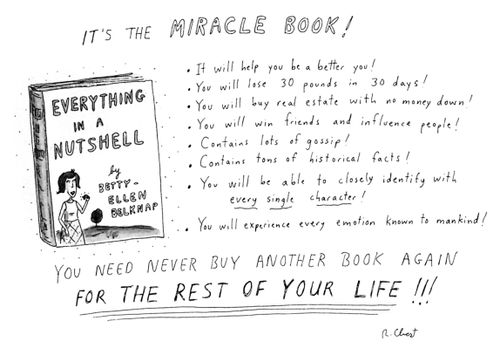 IT'S THE MIRACLE BOOK!
EVERYTHING
IN A
NUTSHELL
by
BETTY-
ELLEN
BELKNAP
• It will help you be a better you!
• You will lose 30 pounds in 30 days!
• You will buy real estate with no money down!
• You will win friends and influence people!
• Contains lots of gossip!
• Contains tons of historical facts!
• You will be able to closely identify with
every single character!
• You will experience every emotion known to mankind!
YOU NEED NEVER BUY ANOTHER BOOK AGAIN
FOR THE REST OF YOUR LIFE!!!
R. Chast